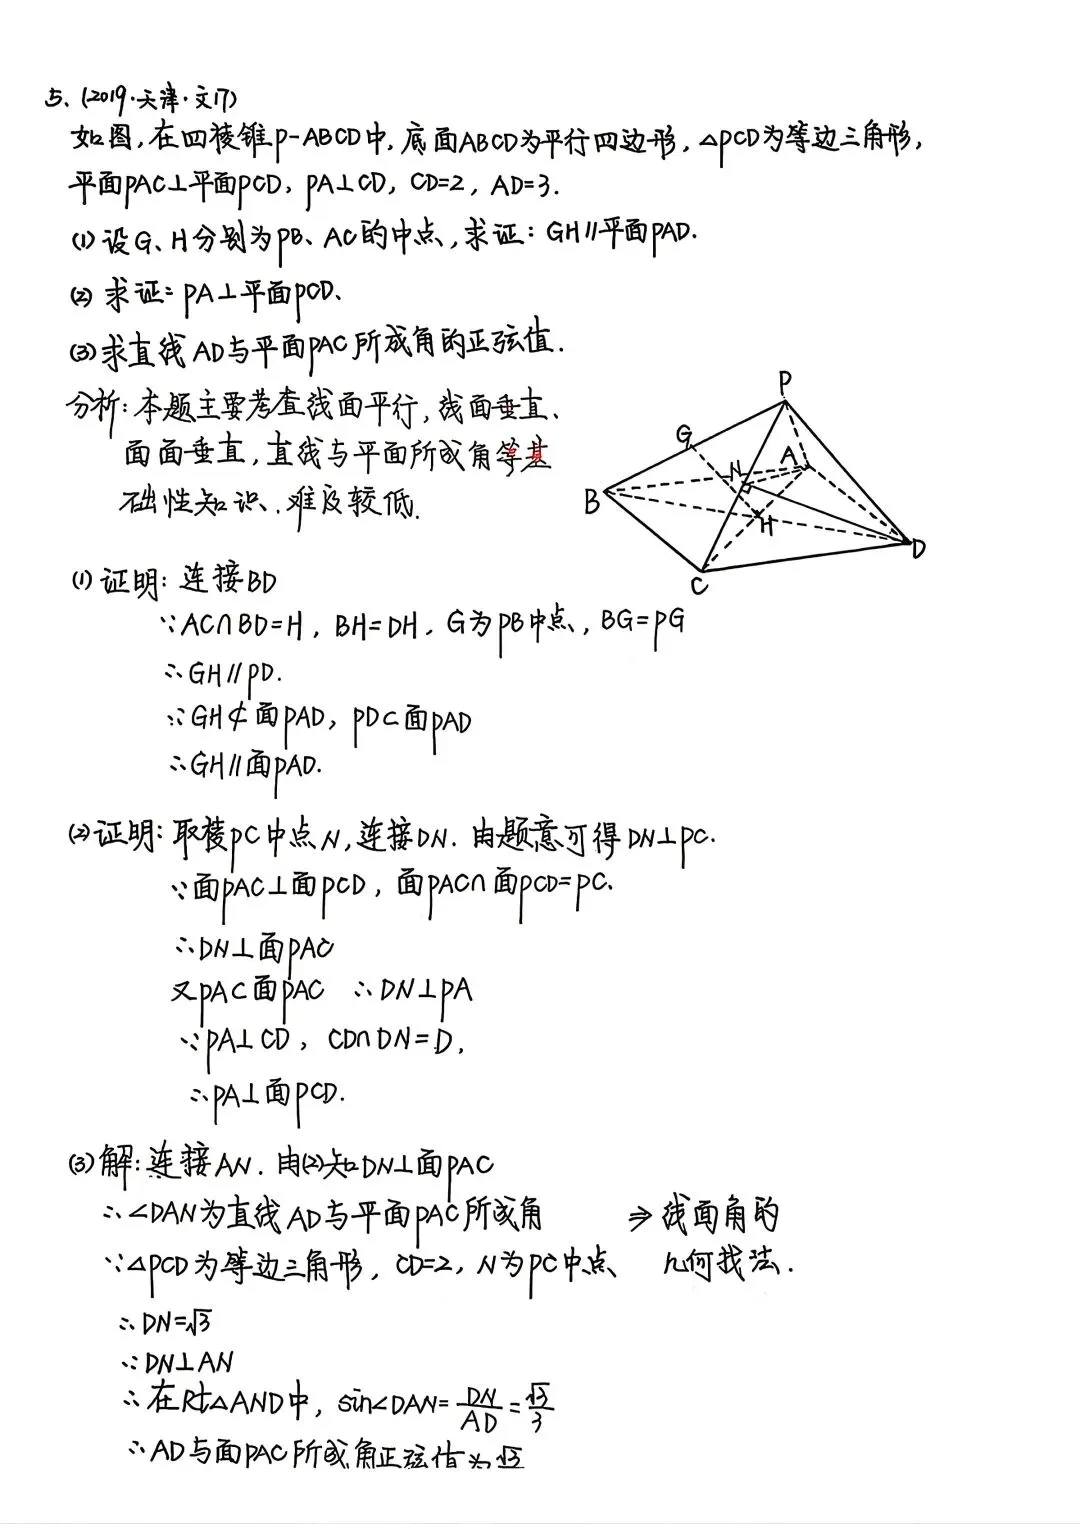 5、(2019·天津·文17)
如图,在四棱锥P-ABCD中,底面ABCD为平行四边形,△PCD为等边三角形,
平面PAC⊥平面PCD,PA⊥CD,CD=2,AD=3.
(1)设G、H分别为PB、AC的中点,求证:GH∥平面PAD.
(2)求证:PA⊥平面PCD、
(3)求直线AD与平面PAC所成角的正弦值.
分析:本题主要考查线面平行,线面垂直、
面面垂直,直线与平面所成角等基
础性知识、难度较低.
P
G
N
A
B
H
D
C
(1)证明:连接BD
∵AC∩BD=H,BH=DH,G为PB中点,BG=PG
∴GH∥PD.
∵GH⊄面PAD,PD⊂面PAD
∴GH∥面PAD.
(2)证明:取棱PC中点N,连接DN.由题意可得DN⊥PC.
∵面PAC⊥面PCD,面PAC∩面PCD=PC.
∴DN⊥面PAC
又PA⊂面PAC ∴DN⊥PA
∵PA⊥CD,CD∩DN=D,
∴PA⊥面PCD.
(3)解:连接AN.由(2)知DN⊥面PAC
∴∠DAN为直线AD与平面PAC所成角 ⇒线面角的
∵△PCD为等边三角形,CD=2,N为PC中点、 几何找法.
∴DN=√3
∵DN⊥AN
∴在Rt△AND中,sin∠DAN=DN/AD=√3/3
∴AD与面PAC所成角正弦值为√3